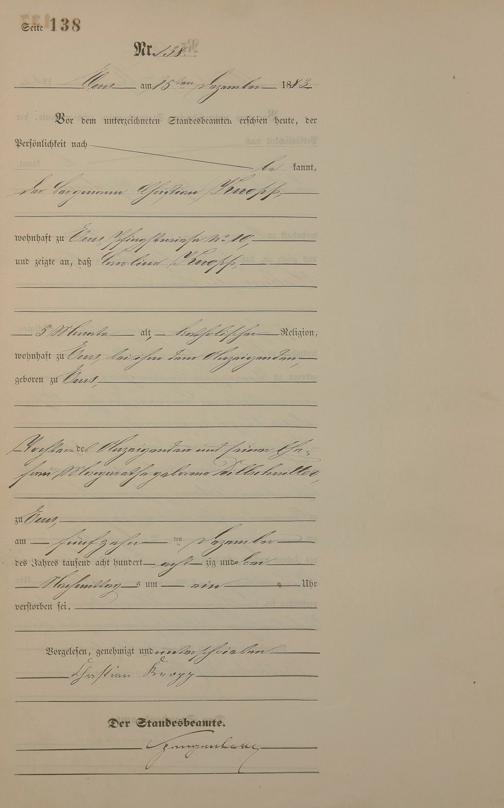 Seite 138
Nr. 138.
am 15ten Dezember 1883
Vor dem unterzeichneten Standesbeamten erschien heute, der
Persönlichkeit nach
be kannt,
der Bergmann Christian Knopp,
wohnhaft zu
und zeigte an, daß Carolina Knopp,
5 Monate alt, katholischer Religion,
wohnhaft zu bei ihm dem Anzeigenden,
geboren zu
Tochter des Anzeigenden und seiner Ehe-
frau Margaretha geborene
zu
am fünfzehn ten Dezember
des Jahres tausend acht hundert acht zig und drei
Nachmittag s um ein Uhr
verstorben sei.
Vorgelesen, genehmigt und unterschrieben
Christian Knopp
Der Standesbeamte.